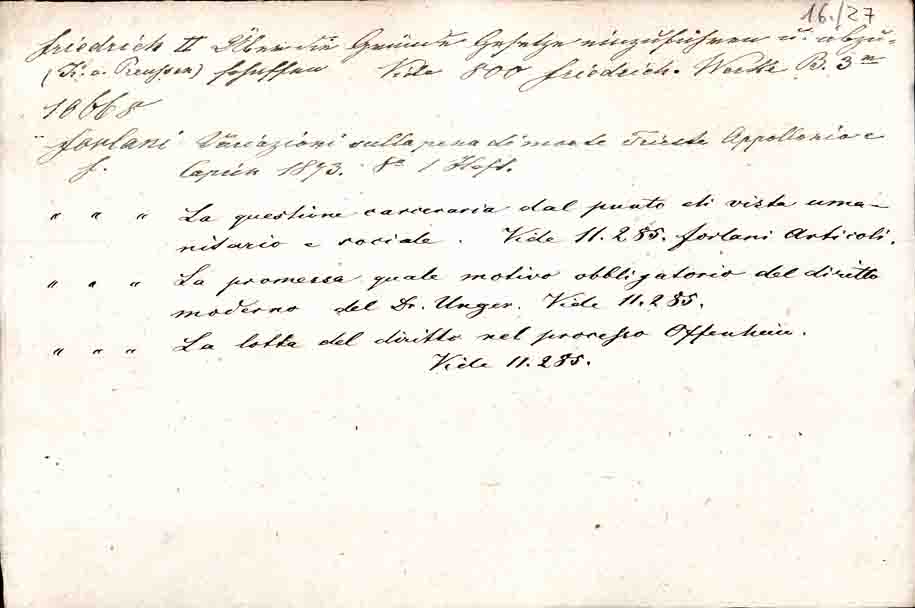 16./27
Friedrich II Über die Gründe Gesetze einzuführen u. abzu-
(K. v. Preußen) schaffen Vide 800 Friedrich. Werke B. 3m
10668
Forlani Variazioni sulla pena di morte Trieste Appollonio e
F. Caprin 1873. 8° 1 Heft.
" " " La questione carceraria dal punto di vista uma-
nitario e sociale. Vide 11.285. Forlani Articoli.
" " " La promessa quale motivo obbligatorio del diritto
moderno del Dr. Unger. Vide 11.285.
" " " La lotta del diritto nel processo Offenheim.
Vide 11.285.